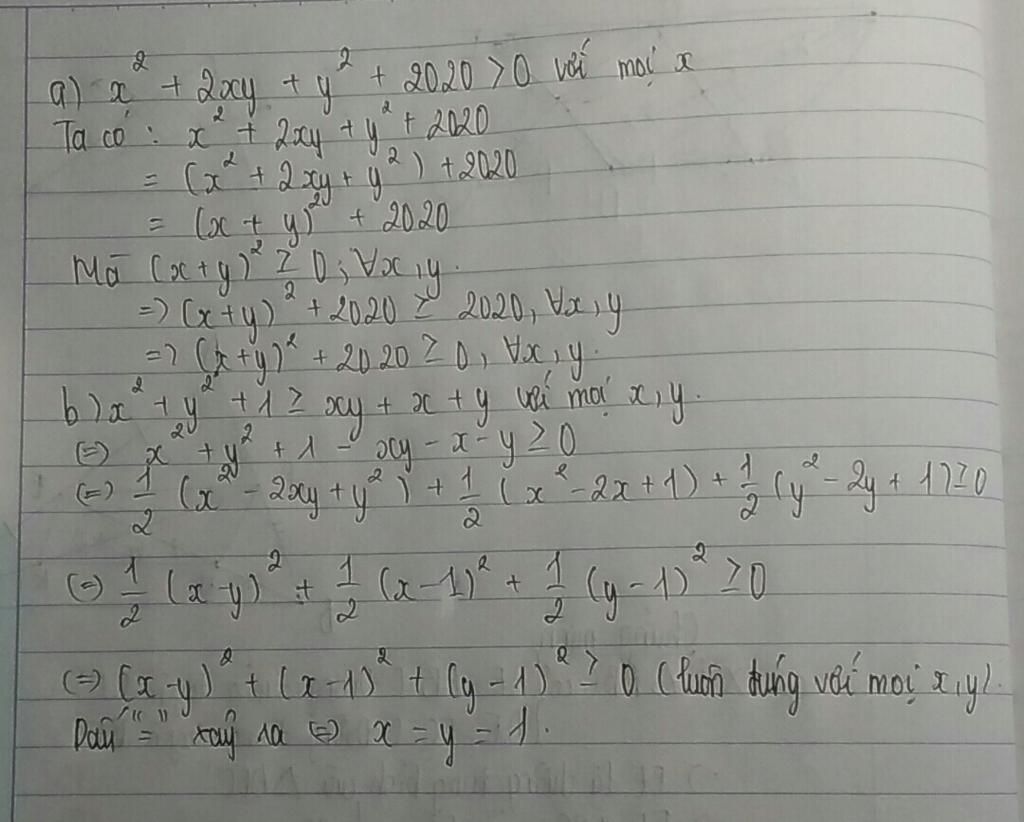 a) x² + 2xy + y² + 2020 > 0 với mọi x
Ta có : x² + 2xy + y² + 2020
= (x² + 2xy + y²) + 2020
= (x + y)² + 2020
Mà (x+y)² ≥ 0; ∀x, y.
=> (x+y)² + 2020 ≥ 2020, ∀x, y
=> (x+y)² + 2020 ≥ 0, ∀x, y.
b) x² + y² + 1 ≥ xy + x + y với mọi x, y.
(=) x² + y² + 1 - xy - x - y ≥ 0
(=) 1/2 (x² - 2xy + y²) + 1/2 (x² - 2x + 1) + 1/2 (y² - 2y + 1) ≥ 0
(=) 1/2 (x - y)² + 1/2 (x - 1)² + 1/2 (y - 1)² ≥ 0
(=) (x - y)² + (x - 1)² + (y - 1)² ≥ 0 (luôn đúng với mọi x, y).
Dấu "=" xảy ra (=) x = y = 1.